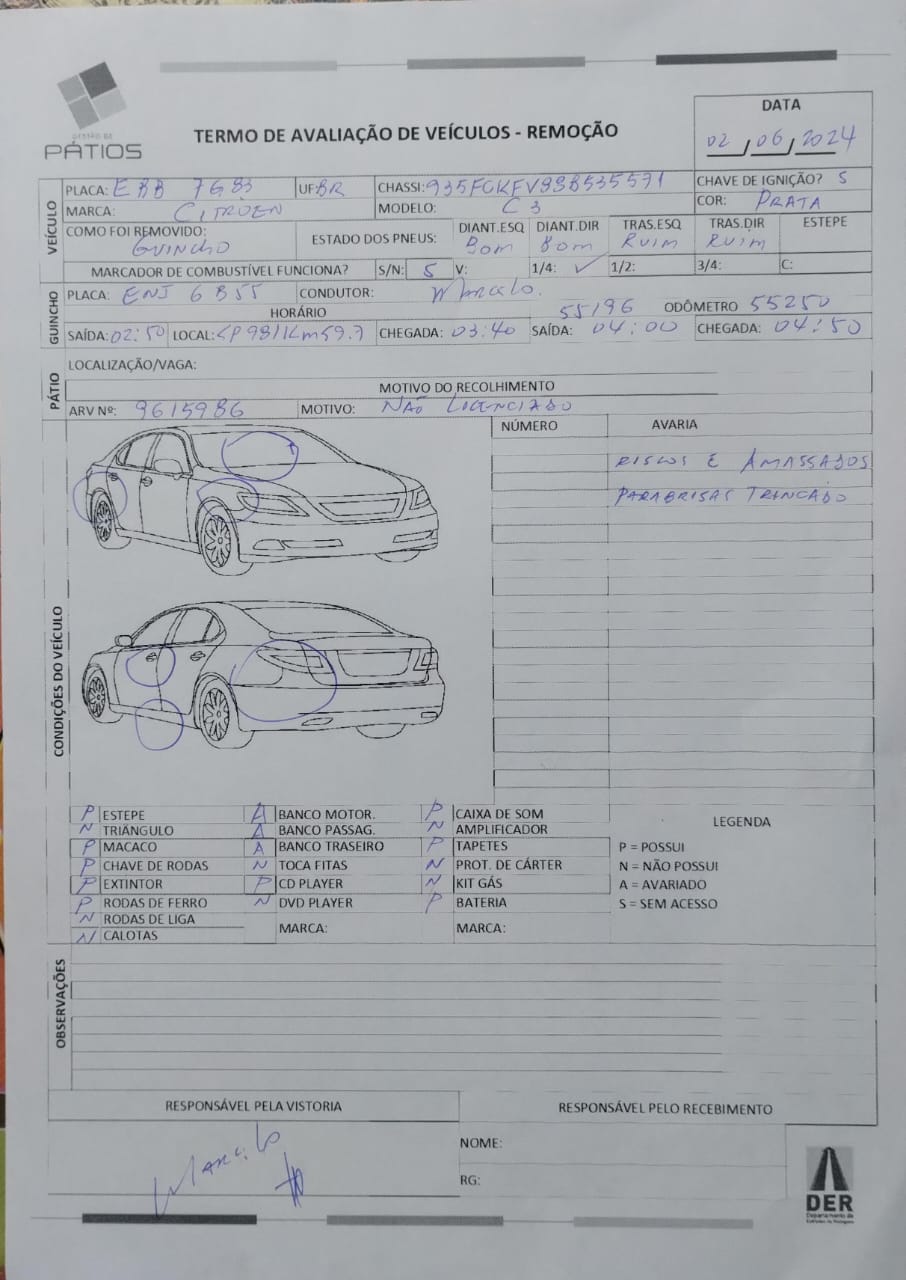 GESTÃO DE
PÁTIOS
TERMO DE AVALIAÇÃO DE VEÍCULOS - REMOÇÃO
DATA
02/06/2024
VEÍCULO
PLACA: EBB 7G83 UF: BR CHASSI: 935FCKFV88B535571 CHAVE DE IGNIÇÃO? S
MARCA: CITRÖEN MODELO: C3 COR: PRATA
COMO FOI REMOVIDO: GUINCHO ESTADO DOS PNEUS: DIANT.ESQ BOM DIANT.DIR BOM TRAS.ESQ RUIM TRAS.DIR RUIM ESTEPE
MARCADOR DE COMBUSTÍVEL FUNCIONA? S/N: S V: 1/4: ✓ 1/2: 3/4: C:
GUINCHO
PLACA: ENJ 6B55 CONDUTOR: Marcelo.
HORÁRIO 55196 ODÔMETRO 55250
SAÍDA: 02:50 LOCAL: SP 98/Km59.7 CHEGADA: 03:40 SAÍDA: 04:00 CHEGADA: 04:50
PÁTIO
LOCALIZAÇÃO/VAGA:
MOTIVO DO RECOLHIMENTO
ARV Nº: 9615986 MOTIVO: NÃO LICENCIADO
CONDIÇÕES DO VEÍCULO
NÚMERO AVARIA
RISCOS E AMASSADOS
PARABRISAS TRINCADO
P ESTEPE A BANCO MOTOR. P CAIXA DE SOM
N TRIÂNGULO A BANCO PASSAG. N AMPLIFICADOR
P MACACO A BANCO TRASEIRO P TAPETES
P CHAVE DE RODAS N TOCA FITAS N PROT. DE CÁRTER
P EXTINTOR P CD PLAYER N KIT GÁS
P RODAS DE FERRO N DVD PLAYER P BATERIA
N RODAS DE LIGA MARCA: MARCA:
N CALOTAS
LEGENDA
P = POSSUI
N = NÃO POSSUI
A = AVARIADO
S = SEM ACESSO
OBSERVAÇÕES
RESPONSÁVEL PELA VISTORIA RESPONSÁVEL PELO RECEBIMENTO
Marcelo
NOME:
RG:
DER
Departamento de
Estradas de Rodagem